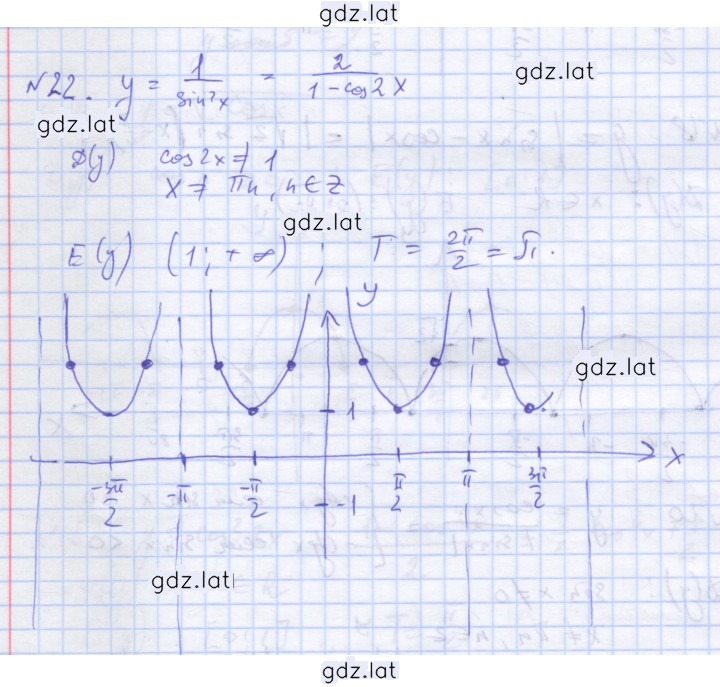 gdz.lat
N22. y = 1/sin²x = 2/(1 - cos2x)
gdz.lat
gdz.lat
D(y) cos2x ≠ 1
x ≠ πn, n ∈ Z
gdz.lat
E(y) (1; +∞) ; T = 2π/2 = π.
y
gdz.lat
1
x
-3π/2 -π -π/2 π/2 π 3π/2
-1
gdz.lat
gdz.lat